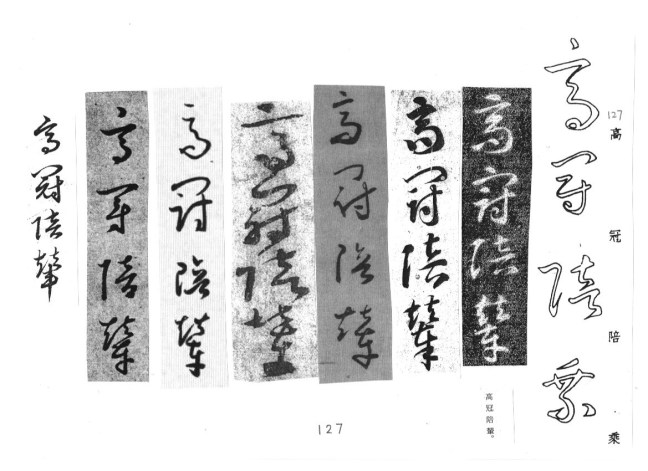 127
高 冠 陪 乗
高冠陪乗
高冠陪輦
高冠陪輦
高冠陪輦
高冠陪輦
高冠陪輦
高冠陪輦
高冠陪輦
高冠陪輦。
127